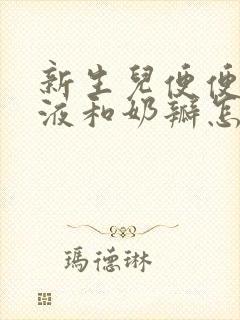 新生兒便便
液和奶瓣怎
瑪德琳